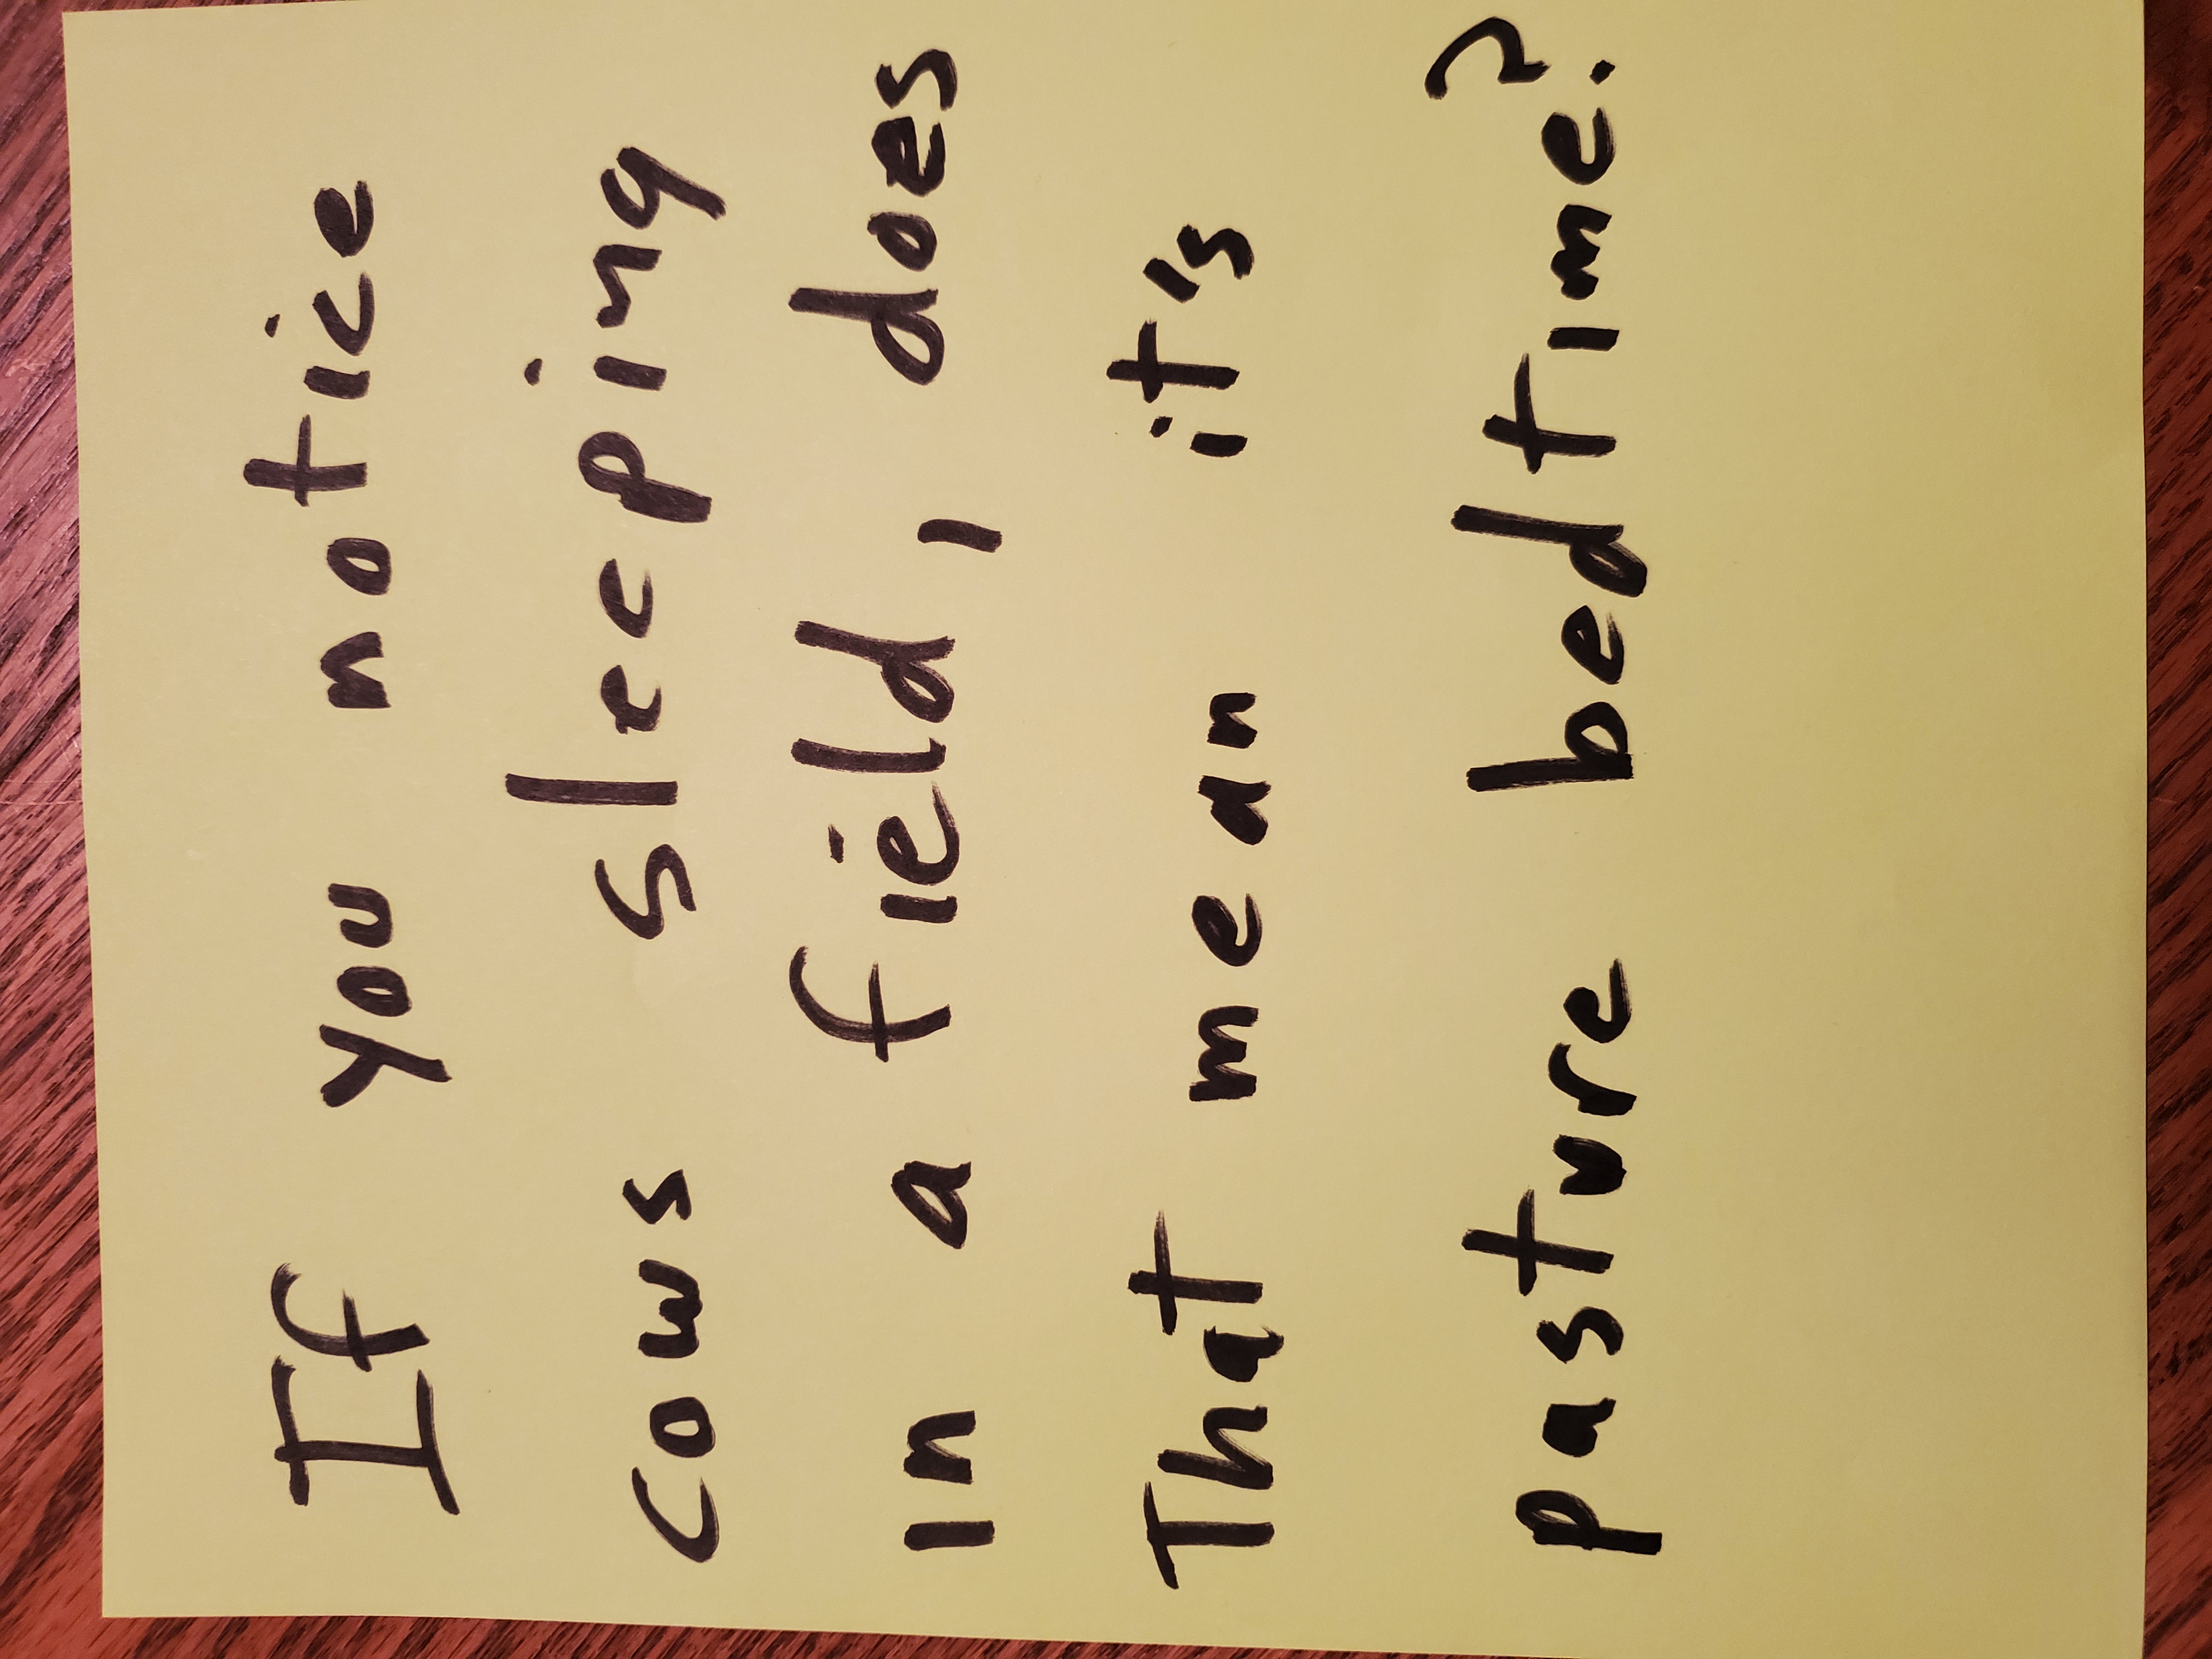 If you notice
cows sleeping
in a field, does
That mean it's
pasture bedtime?